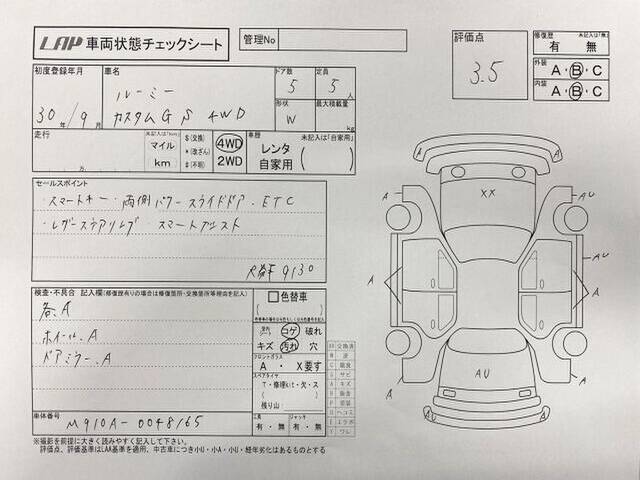 LAP 車両状態チェックシート
管理No
初度登録年月
30年/9月
車名
ルーミー
カスタムG S 4WD
ドア数
5
定員
5人
形状
W
最大積載量
kg
評価点
3.5
修復歴 未記入は「無」
有 無
外装
A・B・C
内装
A・B・C
走行
万
未記入は「km」
マイル
km
$(交換)
*(改ざん)
#(不明)
4WD
2WD
車歴 未記入は「自家用」
レンタ
自家用 ( )
セールスポイント
・スマートキー・両側パワースライドドア・ETC
・レザーステアリング スマートアシスト
9130
検査・不具合 記入欄(修復歴有りの場合は修復箇所・交換箇所等程度を記入)
各、A
ホイール、A
ドアミラー、A
色替車
( )
室内 コゲ 破れ
キズ 汚れ 穴
フロントガラス
A ・ X要す
スペアタイヤ
T・修理kit・欠・ス
残り山( )
工具
有・無
ジャッキ
有・無
車体番号
M910A-0048165
※撮影を前提に大きく読みやすく記入して下さい。
評価点、評価基準はLAA基準を適用、中古車につき小U・小A・小U・経年劣化はあるものとする
XX 交換済
W 波
C 腐食
S サビ
A キズ
P 塗装
U ヘコミ
E エクボ
Y ワレ
A
A
XX
A
AU
A
AU
A
A
A
AU
A
AU